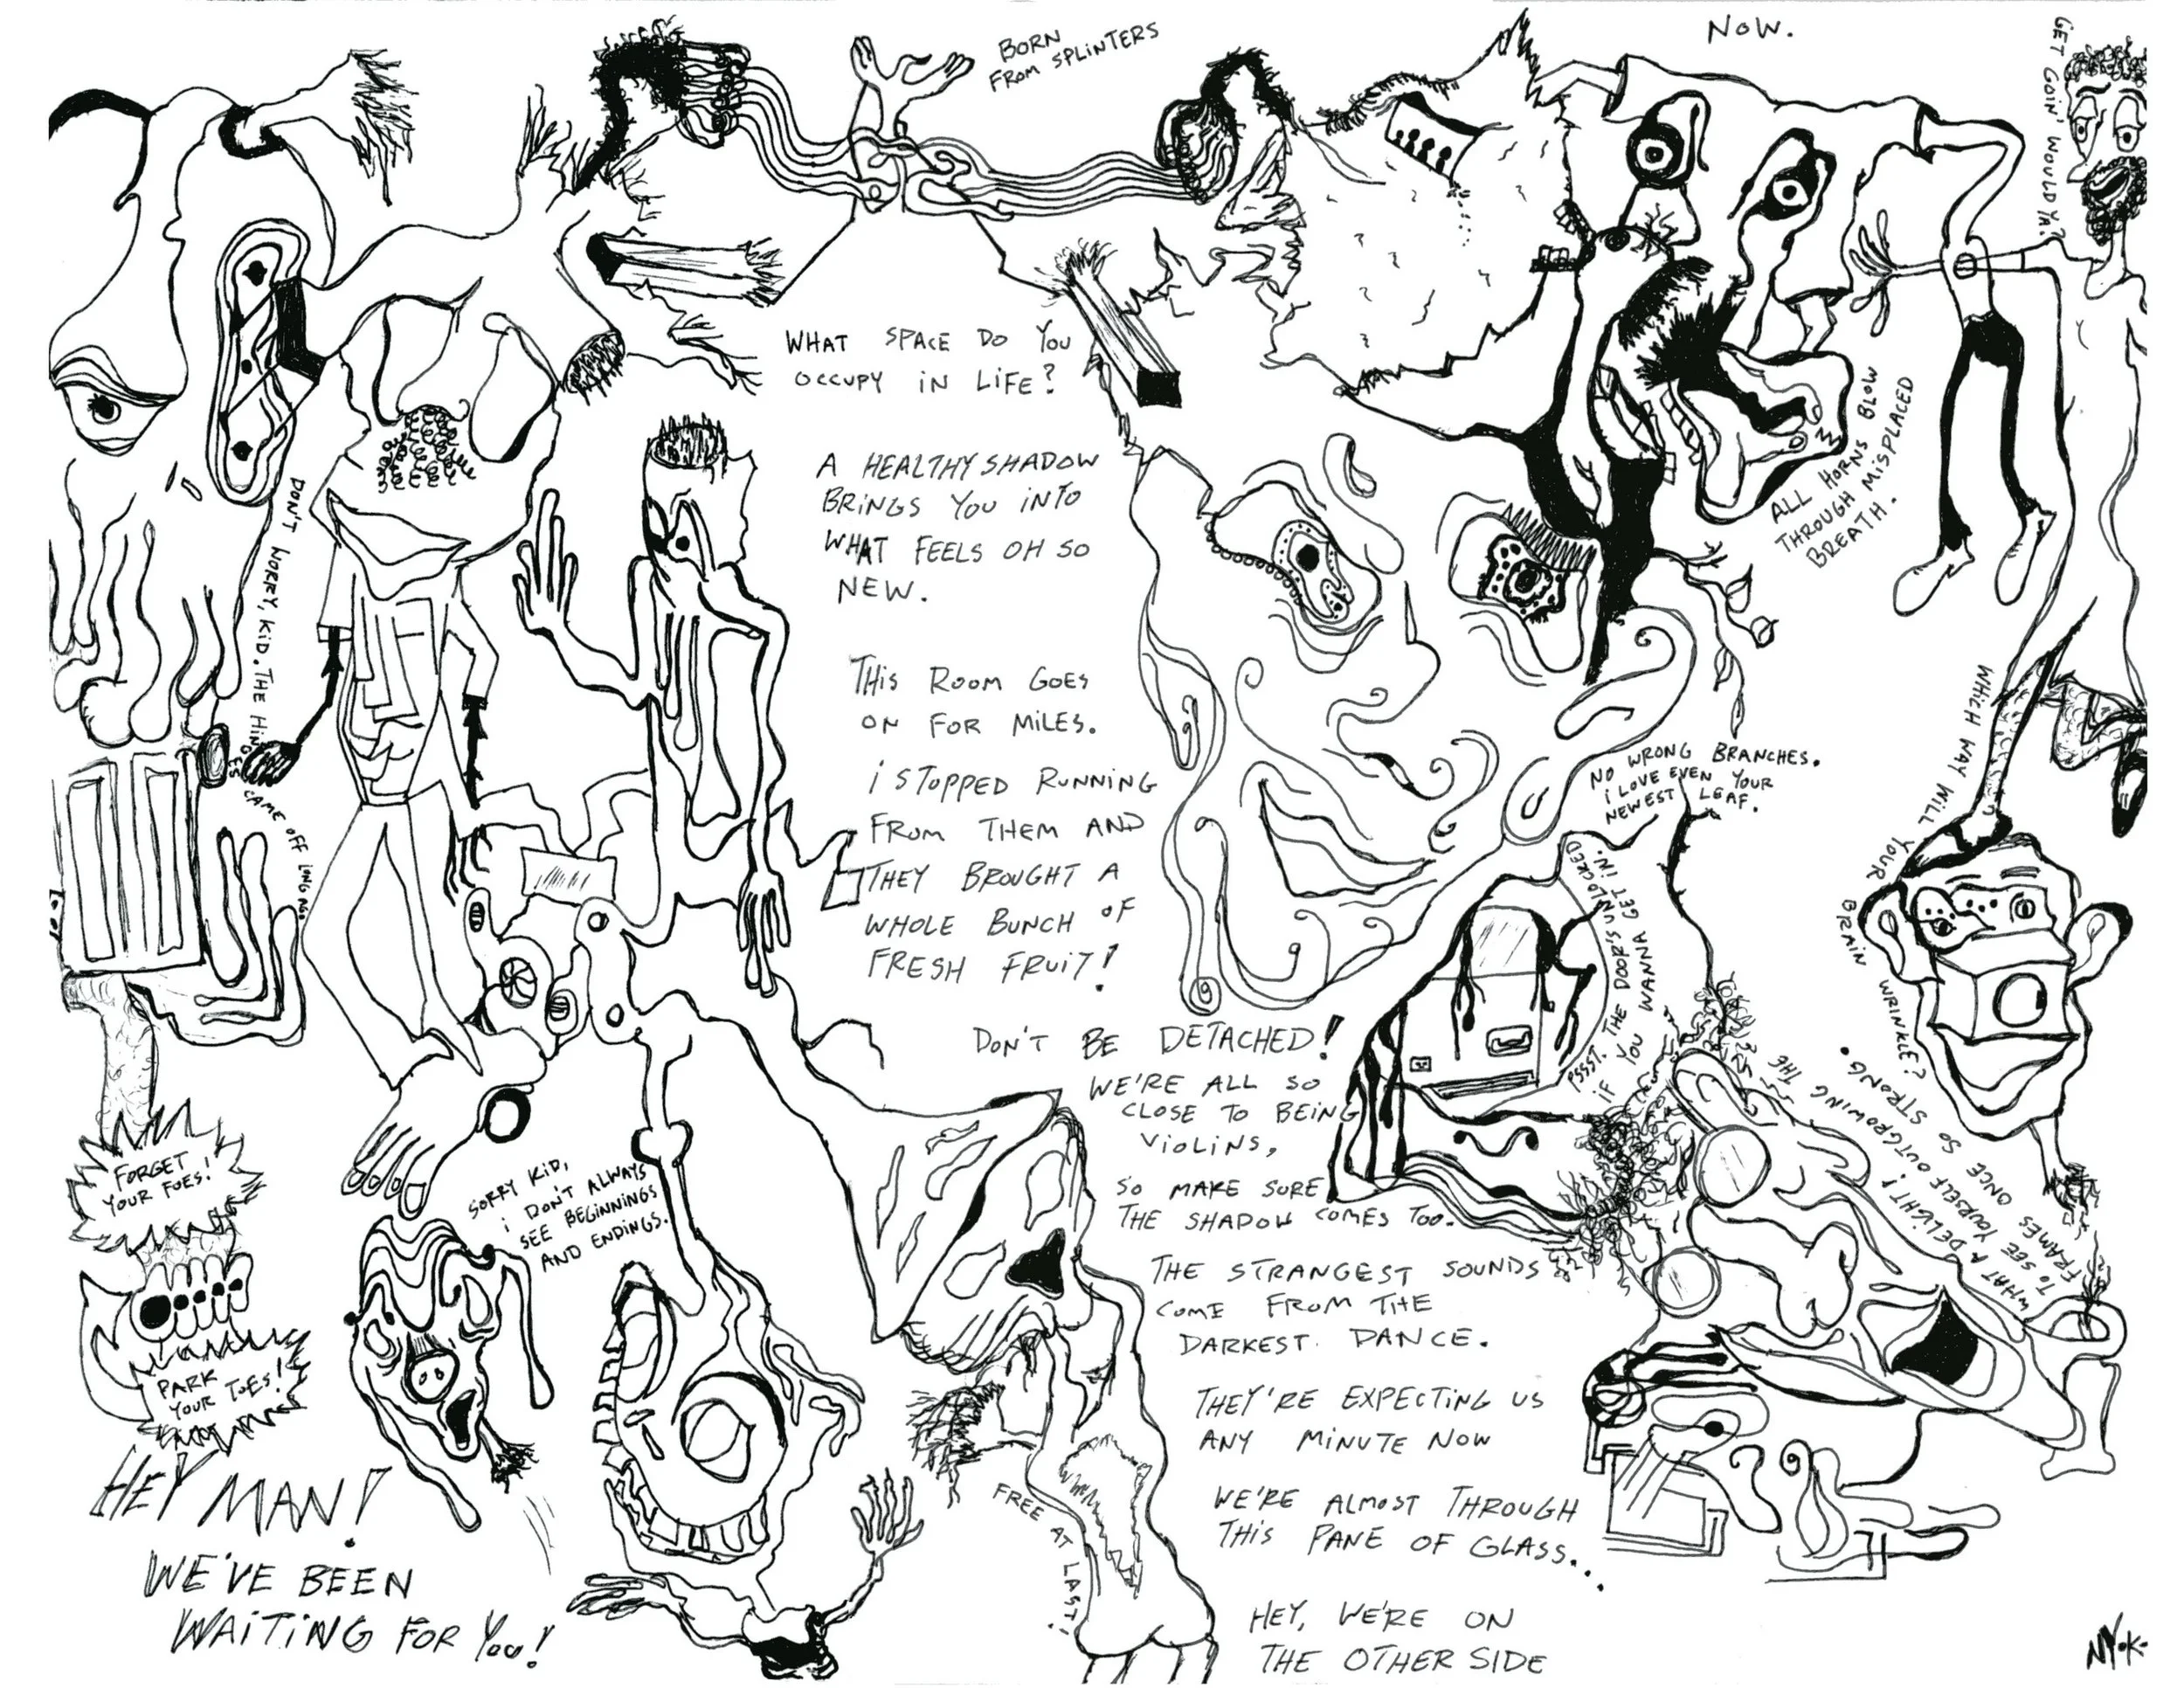 NOW.
BORN
FROM SPLINTERS
GET GOIN' WOULD YA?
WHAT SPACE DO YOU
OCCUPY IN LIFE?
A HEALTHY SHADOW
BRINGS YOU INTO
WHAT FEELS OH SO
NEW.
ALL HORNS BLOW
THROUGH MISPLACED
BREATH.
DON'T WORRY, KID. THE HINGES CAME OFF LONG AGO
THIS ROOM GOES
ON FOR MILES.
I STOPPED RUNNING
FROM THEM AND
THEY BROUGHT A
WHOLE BUNCH OF
FRESH FRUIT!
NO WRONG BRANCHES.
I LOVE EVEN YOUR
NEWEST LEAF.
WHICH WAY WILL YOUR BRAIN WRINKLE?
PSSST. THE DOOR'S UNLOCKED
IF YOU WANNA GET IN.
DON'T BE DETACHED!
WE'RE ALL SO
CLOSE TO BEING
VIOLINS,
SO MAKE SURE
THE SHADOW COMES TOO.
WHAT A DELIGHT!
TO SEE YOURSELF OUTGROWING THE
FRAMES ONCE SO STRONG.
FORGET
YOUR FOES!
SORRY KID,
I DON'T ALWAYS
SEE BEGINNINGS
AND ENDINGS.
THE STRANGEST SOUNDS
COME FROM THE
DARKEST. DANCE.
PARK
YOUR TOES!
THEY'RE EXPECTING US
ANY MINUTE NOW
FREE AT LAST!
WE'RE ALMOST THROUGH
THIS PANE OF GLASS...
HEY MAN!
WE'VE BEEN
WAITING FOR YOU!
HEY, WE'RE ON
THE OTHER SIDE
NY.K.